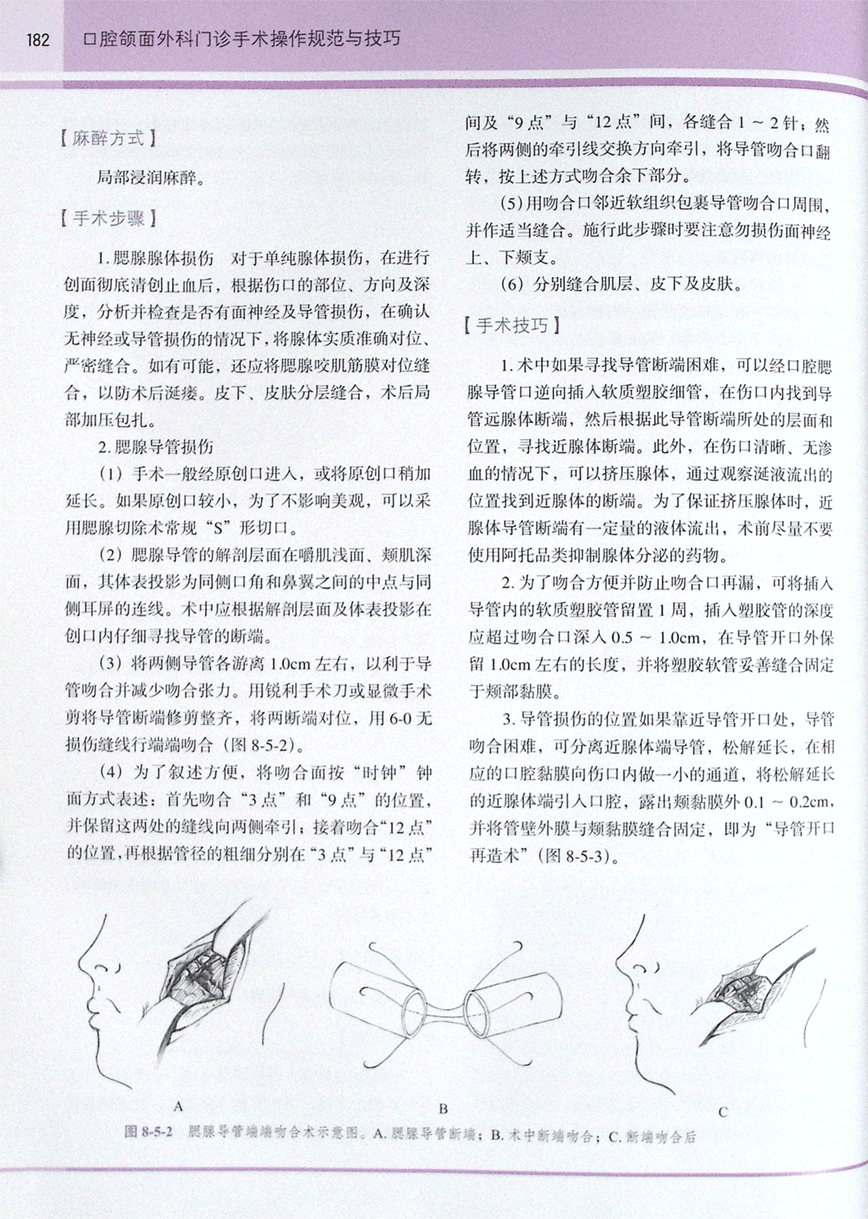 182 口腔颌面外科门诊手术操作规范与技巧
【麻醉方式】
局部浸润麻醉。
【手术步骤】
1.腮腺腺体损伤 对于单纯腺体损伤，在进行
创面彻底清创止血后，根据伤口的部位、方向及深
度，分析并检查是否有面神经及导管损伤，在确认
无神经或导管损伤的情况下，将腺体实质准确对位、
严密缝合。如有可能，还应将腮腺咬肌筋膜对位缝
合，以防术后涎瘘。皮下、皮肤分层缝合，术后局
部加压包扎。
2.腮腺导管损伤
（1）手术一般经原创口进入，或将原创口稍加
延长。如果原创口较小，为了不影响美观，可以采
用腮腺切除术常规“S”形切口。
（2）腮腺导管的解剖层面在嚼肌浅面、颊肌深
面，其体表投影为同侧口角和鼻翼之间的中点与同
侧耳屏的连线。术中应根据解剖层面及体表投影在
创口内仔细寻找导管的断端。
（3）将两侧导管各游离 1.0cm 左右，以利于导
管吻合并减少吻合张力。用锐利手术刀或显微手术
剪将导管断端修剪整齐，将两断端对位，用 6-0 无
损伤缝线行端端吻合（图 8-5-2）。
（4）为了叙述方便，将吻合面按“时钟”钟
面方式表述：首先吻合“3 点”和“9 点”的位置，
并保留这两处的缝线向两侧牵引；接着吻合“12 点”
的位置，再根据管径的粗细分别在“3 点”与“12 点”
间及“9 点”与“12 点”间，各缝合 1 ～ 2 针；然
后将两侧的牵引线交换方向牵引，将导管吻合口翻
转，按上述方式吻合余下部分。
（5）用吻合口邻近软组织包裹导管吻合口周围，
并作适当缝合。施行此步骤时要注意勿损伤面神经
上、下颊支。
（6）分别缝合肌层、皮下及皮肤。
【手术技巧】
1.术中如果寻找导管断端困难，可以经口腔腮
腺导管口逆向插入软质塑胶细管，在伤口内找到导
管远腺体断端，然后根据此导管断端所处的层面和
位置，寻找近腺体断端。此外，在伤口清晰、无渗
血的情况下，可以挤压腺体，通过观察涎液流出的
位置找到近腺体的断端。为了保证挤压腺体时，近
腺体导管断端有一定量的液体流出，术前尽量不要
使用阿托品类抑制腺体分泌的药物。
2.为了吻合方便并防止吻合口再漏，可将插入
导管内的软质塑胶管留置 1 周，插入塑胶管的深度
应超过吻合口深入 0.5 ～ 1.0cm，在导管开口外保
留 1.0cm 左右的长度，并将塑胶软管妥善缝合固定
于颊部黏膜。
3.导管损伤的位置如果靠近导管开口处，导管
吻合困难，可分离近腺体端导管，松解延长，在相
应的口腔黏膜向伤口内做一小的通道，将松解延长
的近腺体端引入口腔，露出颊黏膜外 0.1 ～ 0.2cm，
并将管壁外膜与颊黏膜缝合固定，即为“导管开口
再造术”（图 8-5-3）。
A
B
C
图 8-5-2 腮腺导管端端吻合术示意图。A.腮腺导管断端；B.术中断端吻合；C.断端吻合后